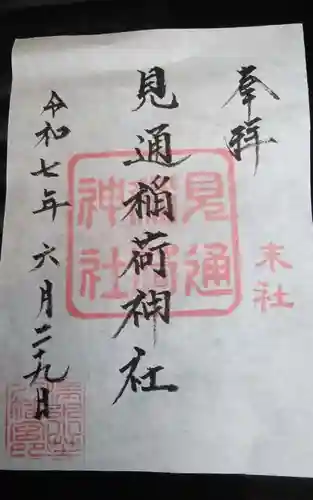 奉拝
末社
見通稲荷神社
見通稲荷神社
令和七年六月二十九日